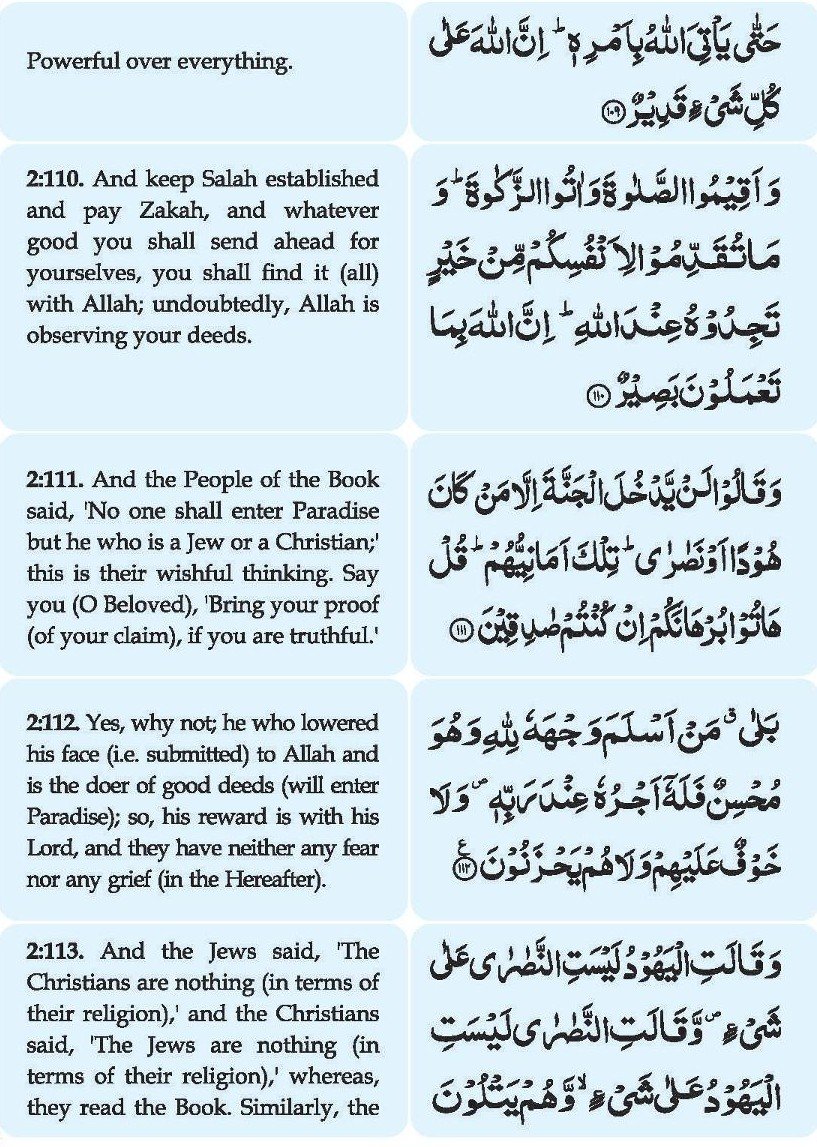 Powerful over everything.
حَتّٰى يَاْتِىَ اللّٰهُ بِاَمْرِهٖ ؕ اِنَّ اللّٰهَ عَلٰى
كُلِّ شَىْءٍ قَدِيْرٌ ﴿۱۰۹﴾
2:110. And keep Salah established
and pay Zakah, and whatever
good you shall send ahead for
yourselves, you shall find it (all)
with Allah; undoubtedly, Allah is
observing your deeds.
وَ اَقِيْمُوا الصَّلٰوةَ وَ اٰتُوا الزَّكٰوةَ ؕ وَ
مَا تُقَدِّمُوْا لِاَنْفُسِكُمْ مِّنْ خَيْرٍ
تَجِدُوْهُ عِنْدَ اللّٰهِ ؕ اِنَّ اللّٰهَ بِمَا
تَعْمَلُوْنَ بَصِيْرٌ ﴿۱۱۰﴾
2:111. And the People of the Book
said, 'No one shall enter Paradise
but he who is a Jew or a Christian;'
this is their wishful thinking. Say
you (O Beloved), 'Bring your proof
(of your claim), if you are truthful.'
وَ قَالُوْا لَنْ يَّدْخُلَ الْجَنَّةَ اِلَّا مَنْ كَانَ
هُوْدًا اَوْ نَصٰرٰى ؕ تِلْكَ اَمَانِيُّهُمْ ؕ قُلْ
هَاتُوْا بُرْهَانَكُمْ اِنْ كُنْتُمْ صٰدِقِيْنَ ﴿۱۱۱﴾
2:112. Yes, why not; he who lowered
his face (i.e. submitted) to Allah and
is the doer of good deeds (will enter
Paradise); so, his reward is with his
Lord, and they have neither any fear
nor any grief (in the Hereafter).
بَلٰى ۗ مَنْ اَسْلَمَ وَجْهَهٗ لِلّٰهِ وَ هُوَ
مُحْسِنٌ فَلَهٗۤ اَجْرُهٗ عِنْدَ رَبِّهٖ ۪ وَ لَا
خَوْفٌ عَلَيْهِمْ وَ لَا هُمْ يَحْزَنُوْنَ ﴿۱۱۲﴾ ع
2:113. And the Jews said, 'The
Christians are nothing (in terms of
their religion),' and the Christians
said, 'The Jews are nothing (in
terms of their religion),' whereas,
they read the Book. Similarly, the
وَ قَالَتِ الْيَهُوْدُ لَيْسَتِ النَّصٰرٰى عَلٰى
شَىْءٍ ۪ وَّ قَالَتِ النَّصٰرٰى لَيْسَتِ
الْيَهُوْدُ عَلٰى شَىْءٍ ۙ وَّ هُمْ يَتْلُوْنَ